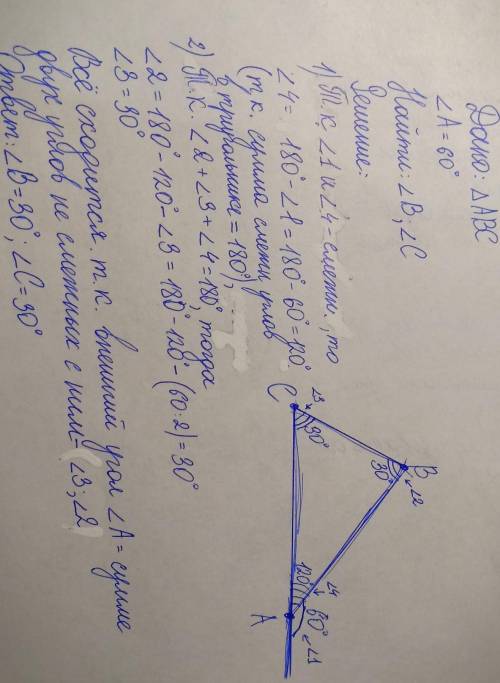 Дано: △ABC
∠A = 60°
Найти: ∠B, ∠C
Решение:
1) Т.к. ∠1 и ∠4 – смежные, то
∠4 = 180° - ∠1 = 180° - 60° = 120°
(т.к. сумма смежн углов
в треугольнике = 180°),
2) Т.к. ∠2 + ∠3 + ∠4 = 180°, тогда
∠2 = 180° - 120° - ∠3 = 180° - 120° - (60:2) = 30°
∠3 = 30°
Всё сходится т.к. внешний угол ∠A = сумме
двух углов не смежных с ним – ∠3; ∠2
Ответ: ∠B = 30°; ∠C = 30°
B
∠2
30°
C
∠3
30°
A
120°
∠4
60°
∠1